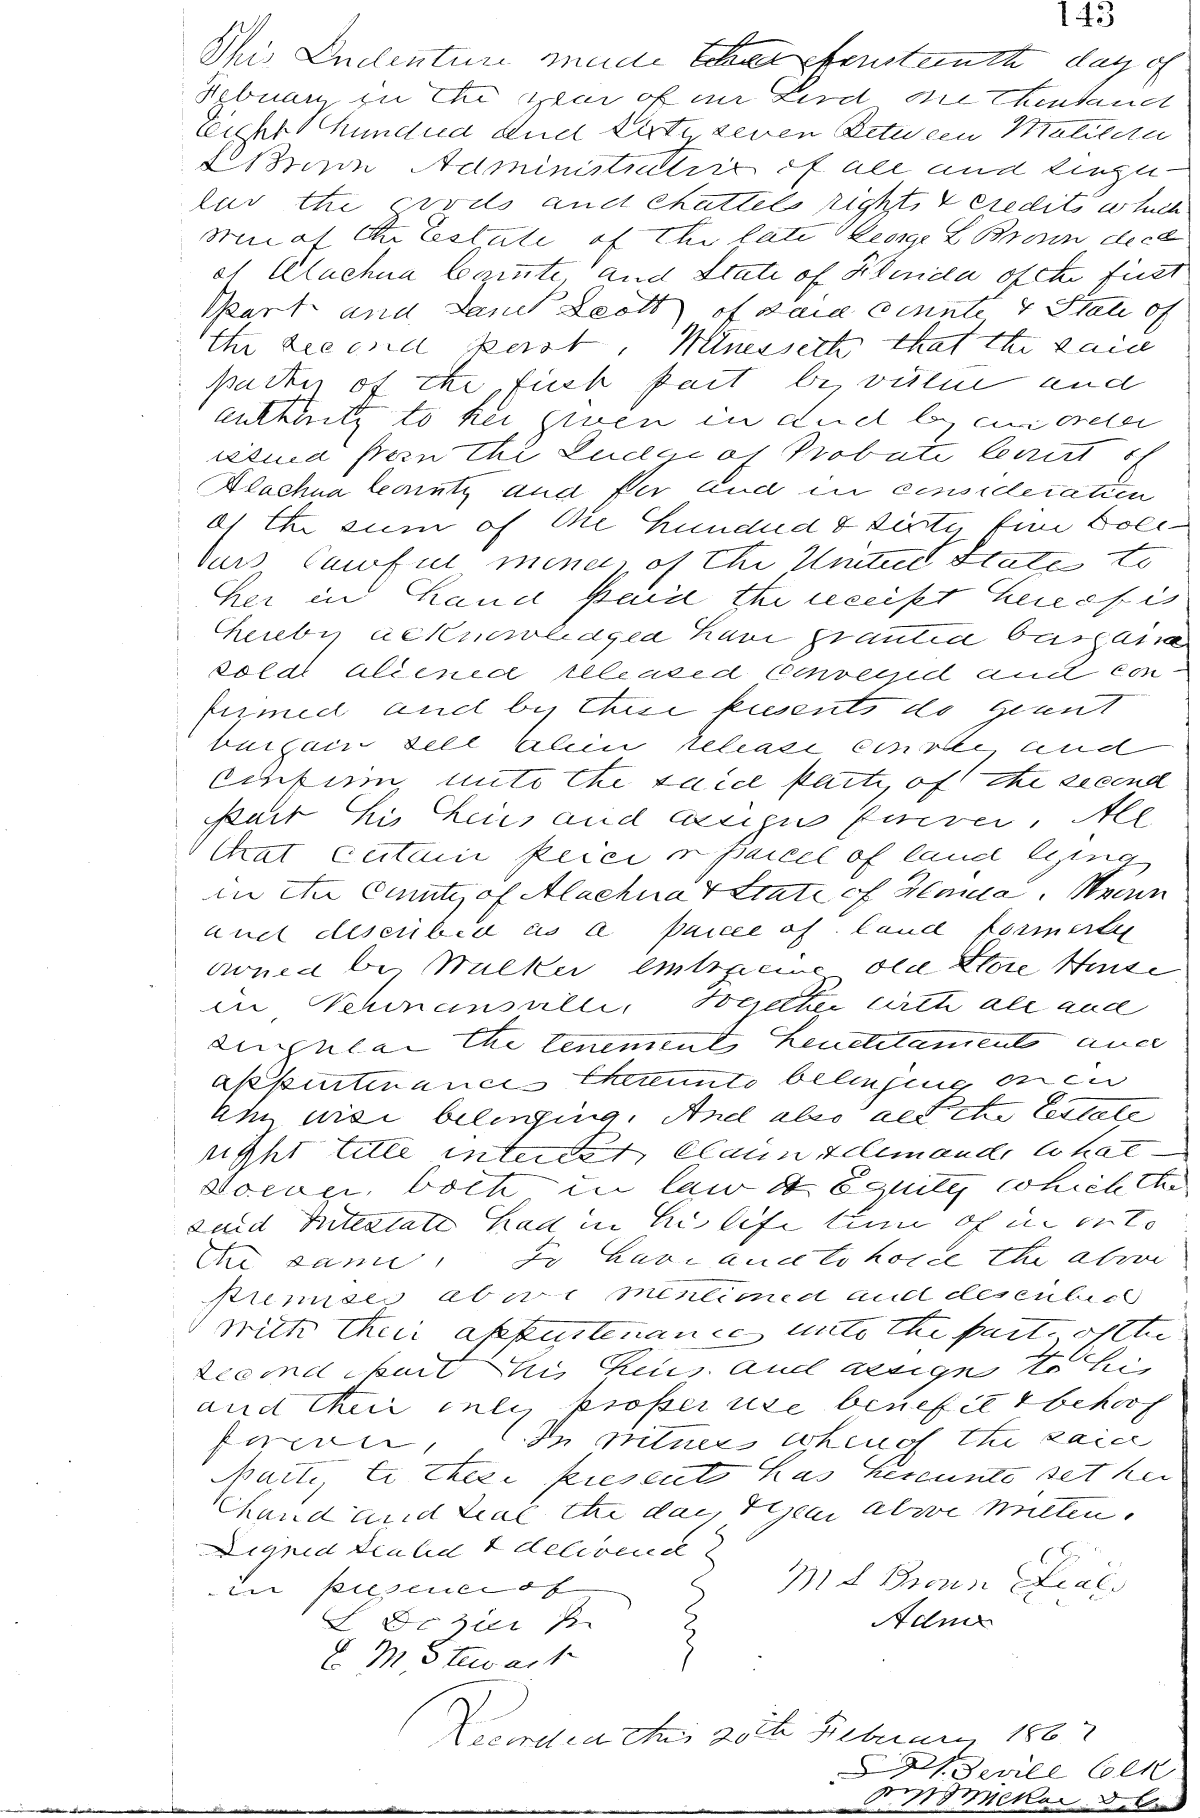 143
This Indenture made the fourteenth day of
Febuary in the year of our Lord one thousand
Eight hundred and Sixty seven Between Matilda
L Brown Administratrix of all and singu-
lar the goods and chattels rights & credits which
were of the Estate of the late George L Brown decd
of Alachua County and State of Florida of the first
part and Janet Scott of said County & State of
the second part, Witnesseth that the said
party of the first part by virtue and
authority to her given in and by an order
issued from the Judge of Probate Court of
Alachua County and for and in consideration
of the sum of One hundred & sixty five Doll-
ars lawful money of the United States to
her in hand paid the receipt hereof is
hereby acknowledged have granted bargained
sold aliened released conveyed and con-
firmed and by these presents do grant
bargain sell alien release convey and
confirm unto the said party of the second
part his heirs and assigns forever, All
that certain peice or parcel of land lying
in the County of Alachua & State of Florida. Known
and described as a parcel of land formerly
owned by Walker embracing old Store House
in Newnansville, Together with all and
singular the tenements hereditaments and
appurtenances thereunto belonging or in
any wise belonging. And also all the Estate
right title interest, Claim & demands what-
soever, both in law & Equity which the
said Intestate had in his life time of in or to
the same, To have and to hold the above
premises above mentioned and described
with their appurtenances unto the party of the
second part his heirs and assigns to his
and their only proper use benefit & behoof
forever, In witness whereof the said
Party to these presents has hereunto set her
hand and seal the day & year above written.
Signed Sealed & delivered
in presence of
M L Brown Seal
L Dozier Jr.
Admx
E. M. Stewart
Recorded this 20th February 1867
Deville Clk